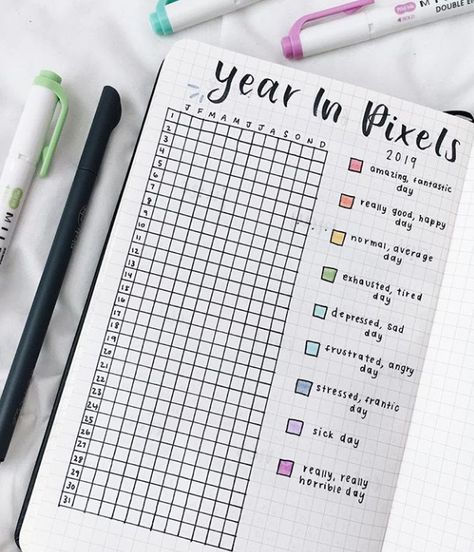 Year In Pixels
2019
J F M A M J J A S O N D
1
2
3
4
5
6
7
8
9
10
11
12
13
14
15
16
17
18
19
20
21
22
23
24
25
26
27
28
29
30
31
amazing, fantastic
day
really good, happy
day
normal, average
day
exhausted, tired
day
depressed, sad
day
frustrated, angry
day
stressed, frantic
day
sick day
really, really
horrible day
DOUBLE